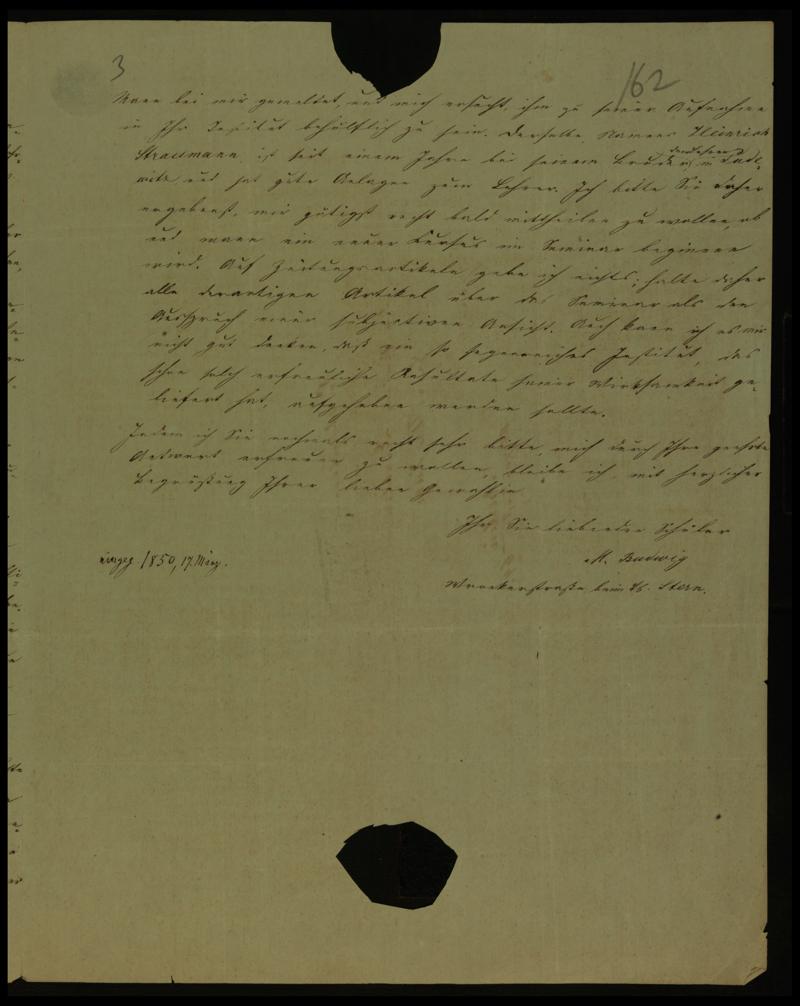 3
162
Mann bei mir gemeldet, und mich ersucht, ihm zu seiner Aufnahme
in Ihr Institut behülflich zu sein. Derselbe, Namens Heinrich
Strassmann, ist seit einem Jahre bei seinem Bruder, in
und hat gute Anlagen zum Lehrer. Ich bitte Sie daher
ergebenst, mir gütigst recht bald mittheilen zu wollen, ob
und wann ein neuer Kursus im Seminar beginnen
wird. Auf Zeitungsartikeln gebe ich nichts; halte daher
alle derartigen Artikel über das Seminar als den
Ausspruch einer subjectiven Ansicht. Auch kann ich es mir
nicht gut denken, daß ein so segensreiches Institut, das
schon solch erfreuliche Resultate seiner Wirksamkeit ge-
liefert hat, aufgehoben werden sollte.
Indem ich Sie nochmals recht sehr bitte, mich durch Ihre geehrte
Antwort erfreuen zu wollen, bleibe ich, mit herzlicher
Begrüßung Ihrer lieben Gemahlin
Ihr Sie liebender Schüler
M. Budwig
beim H. Stern.
eingeg. 1850, 17. März.